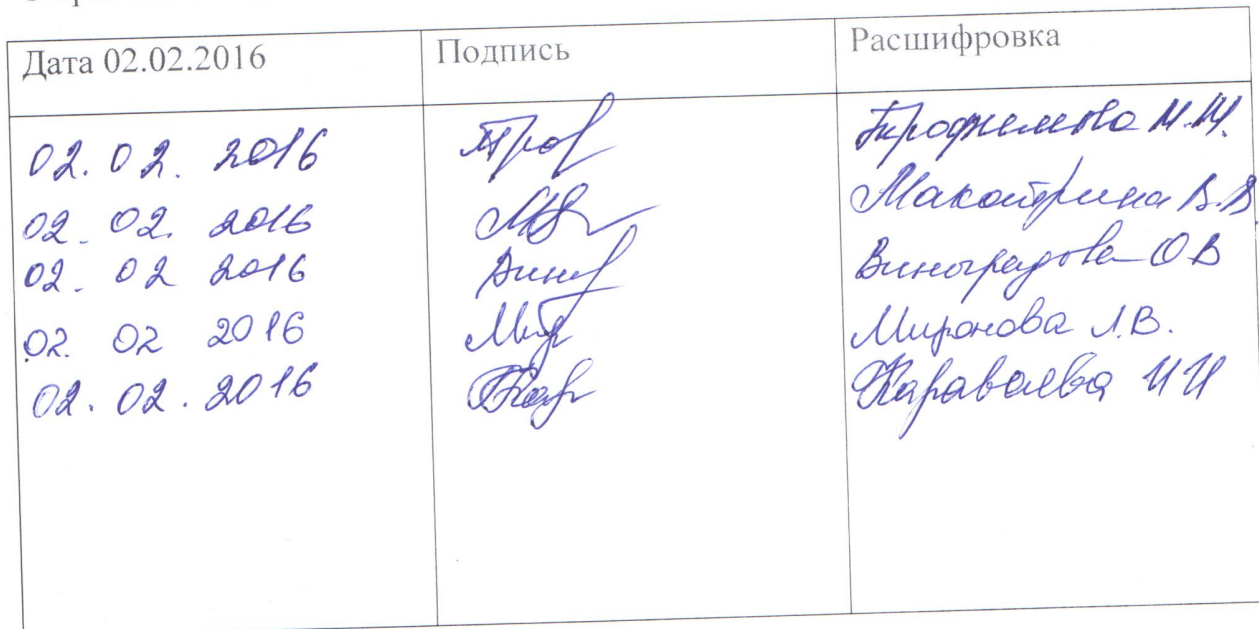 Дата 02.02.2016 Подпись Расшифровка
02.02.2016 Проф Трофимова М.М.
02.02.2016 В.В.
02.02 2016 Вин Виноградова О В
02. 02 2016 Миронова Л.В.
02.02.2016 Кар Караваева И И